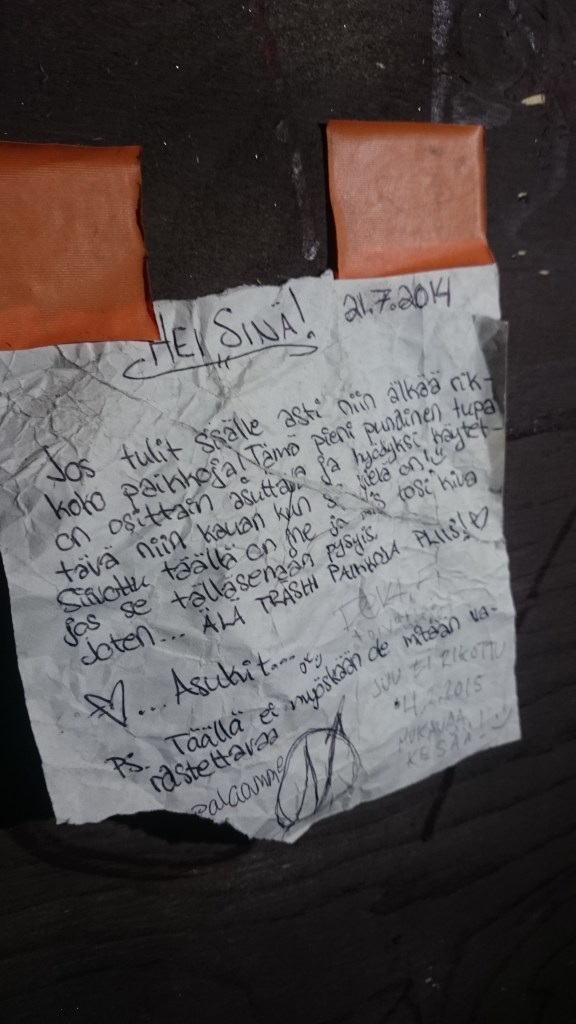 HEI SINÄ! 21.7.2014
Jos tulit sisälle asti niin älkää rik-
koko paikkoja! Tämä pieni punainen tupa
on osittain asuttava ja hyödyksi käytet-
tävä niin kauan kun se vielä on! :)
Siivottu täällä on me ja ois tosi kiva
jos se tälläsenään pysyis.
Joten... ÄLÄ TRASHI PAIKKOJA PLIIS! ♡
♡... Asukit...
Ps. Täällä ei myöskään oo mitään va-
rastettavaa
palaamme
JUU EI RIKOTTU
4.2.2015
MUKAVAA
KESÄÄ!